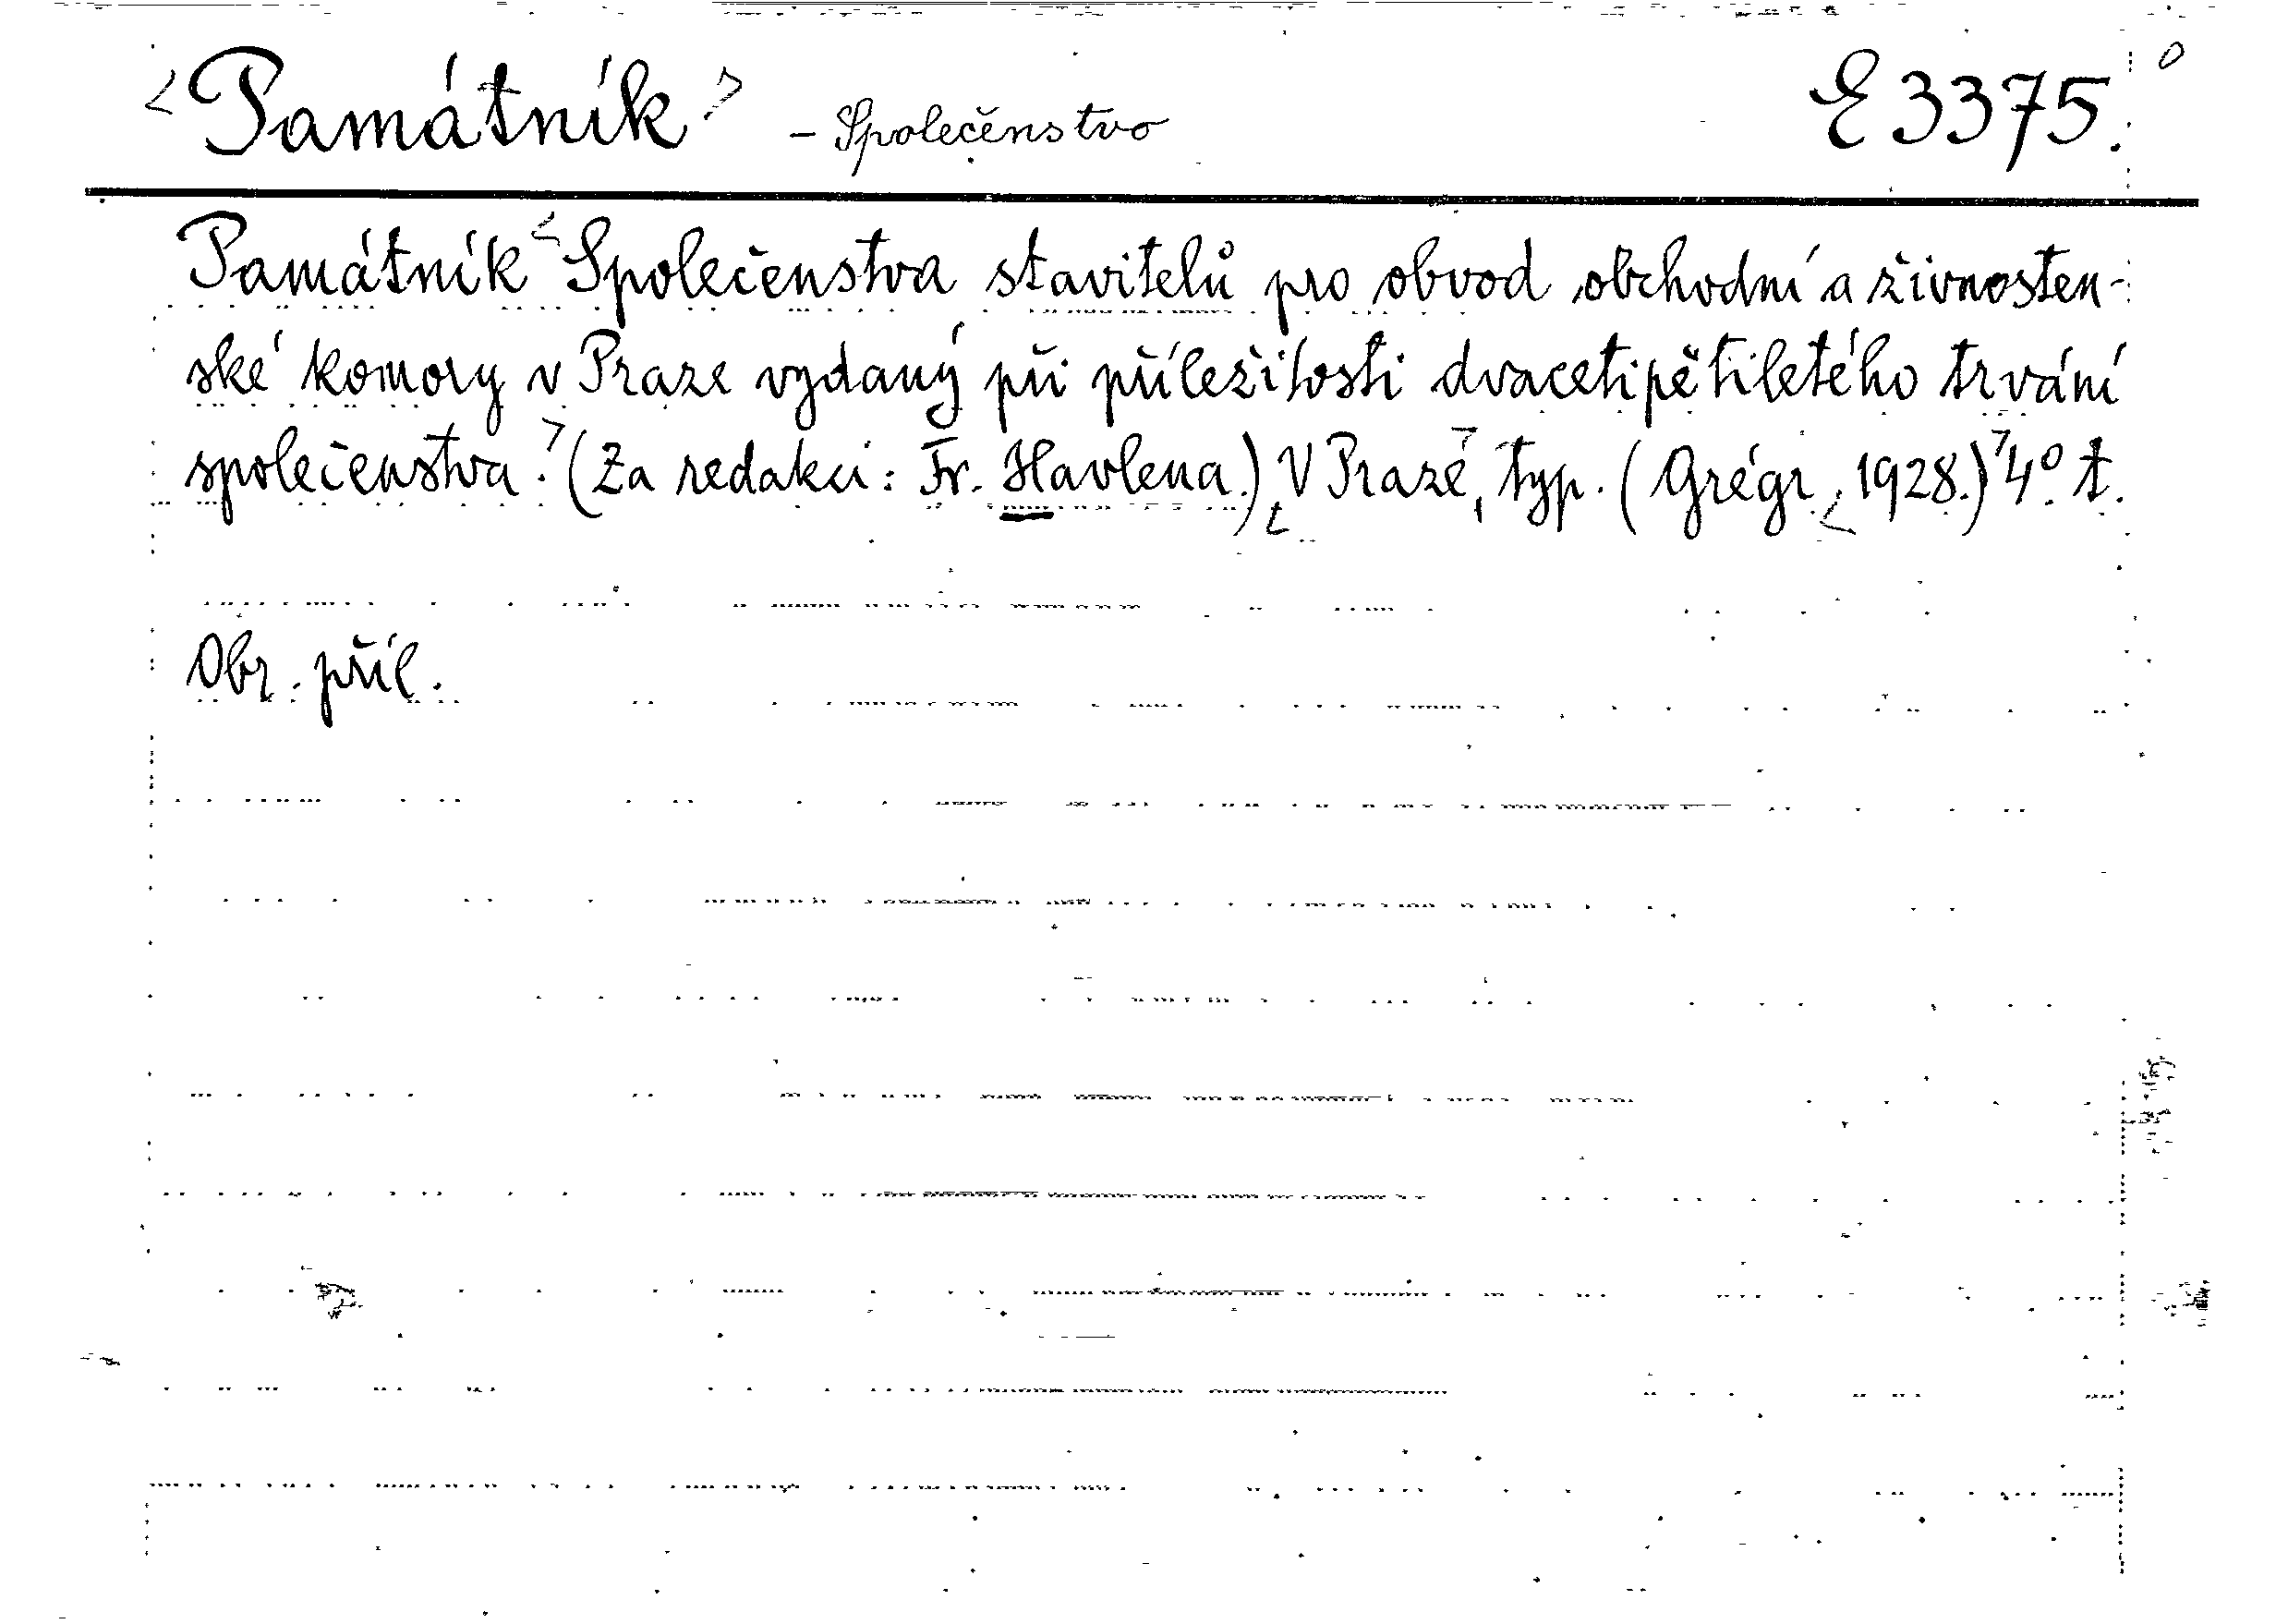 <Památník> - Společenstvo E 3375. 0
Památník <Společenstva stavitelů pro obvod obchodní a živnosten-
ské komory v Praze vydaný při příležitosti dvacetipětiletého trvání
společenstva.> (Za redakci: Fr. Havlena.) V Praze, typ. (Grégr, 1928.) 4º. t.
Obr. příl.